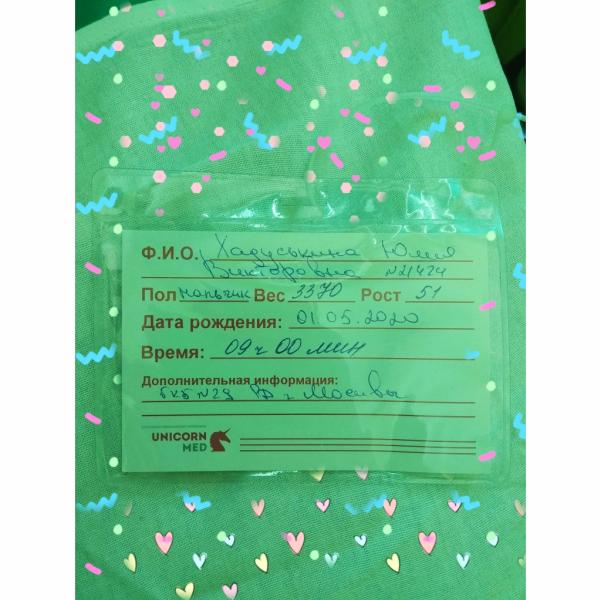 Ф.И.О. Хадуськина Юлия
Викторовна N21424
Пол мальчик Вес 3370 Рост 51
Дата рождения: 01.05.2020
Время: 09 ч 00 мин
Дополнительная информация:
ГКБ N29 г Москвы
UNICORN
MED